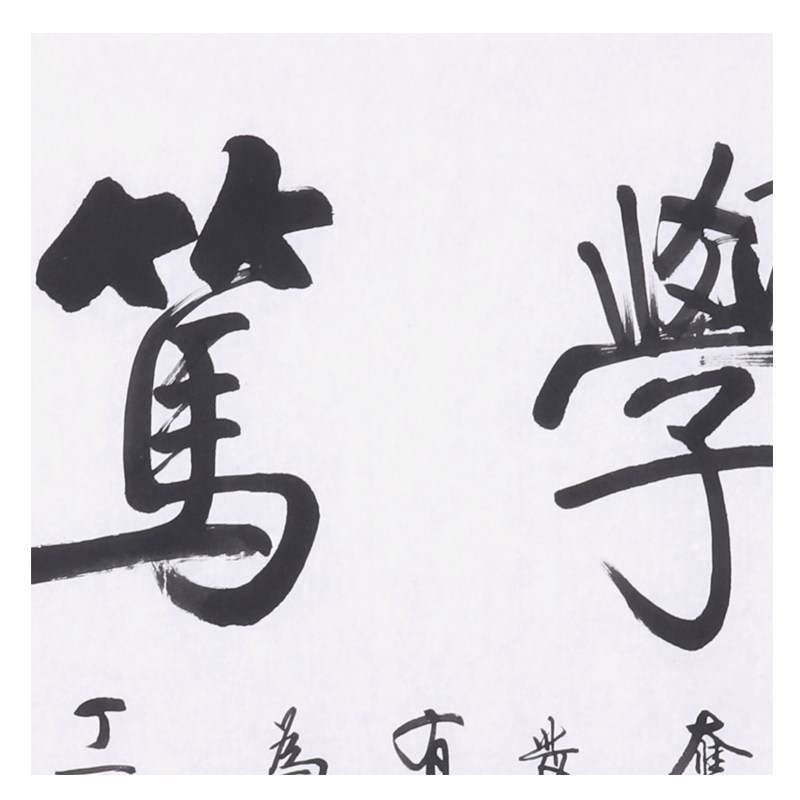 學篤
奮發有為
丁